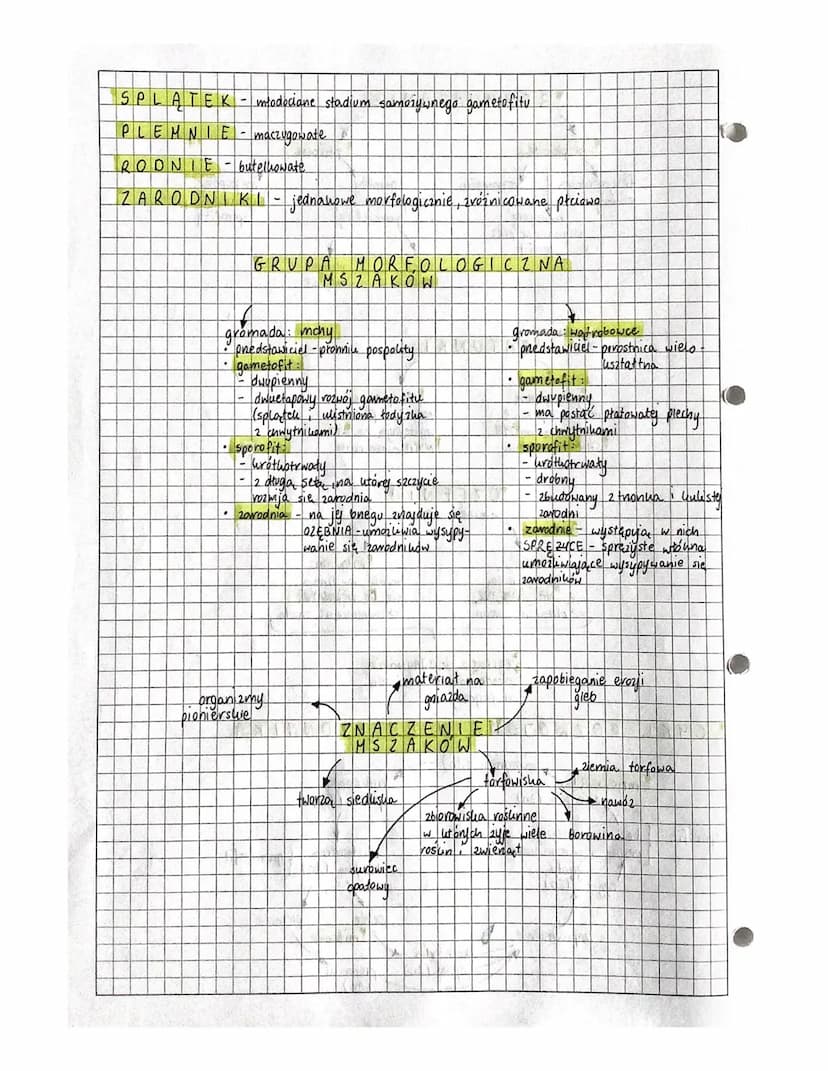 SPLĄTEK - młodociane stadium samożywnego gametofitu
PLEMNIE - maczugowate
RODNIE - butelkowate
ZARODNIKI - jednakowe morfologicznie, zróżnicowane płciowo
GRUPA MORFOLOGICZNA
MSZAKÓW
gromada: mchy
• przedstawiciel - płonnik pospolity
• gametofit:
- dwupienny
- dwuetapowy rozwój gametofitu
(splątek i ulistniona łodyżka
z chwytnikami)
• sporofit:
- krótkotrwały
- z długą setą, na której szczycie
rozwija się zarodnia
• zarodnia - na jej brzegu znajduje się
OZĘBNIA - umożliwia wysypy-
wanie się zarodników
gromada: wątrobowce
• przedstawiciel - porostnica wielo-
kształtna
• gametofit:
- dwupienny
- ma postać płatowatej plechy
z chwytnikami
• sporofit:
- krótkotrwały
- drobny
- zbudowany z trzonka i kulistej
zarodni
• zarodnie - występują w nich
SPRĘŻYCE - sprężyste włókna
umożliwiające wysypywanie się
zarodników
materiał na
gniazda
zapobieganie erozji
gleb
organizmy
pionierskie
ZNACZENIE
MSZAKÓW
tworzą siedliska
torfowiska
ziemia torfowa
nawóz
borowina
zbiorowiska roślinne
w których żyje wiele
roślin i zwierząt
surowiec
opałowy